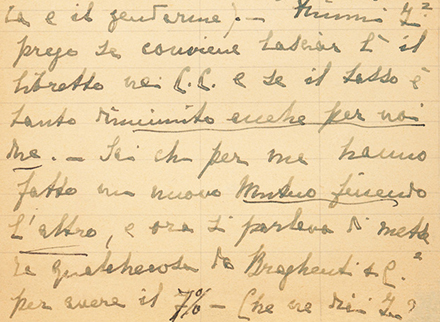 ta e il gendarme). — Dimmi Z.ª
prego se conviene lasciar lì il
libretto nei C.C. e se il tasso è
tanto diminuito anche per noi
due. — Sai che per me hanno
fatto un nuovo Mutuo finendo
l'altro, e ora si parlava di mette
re qualchecosa da Braghenti & C.ª
per avere il 7% — Che ne dici Z.?